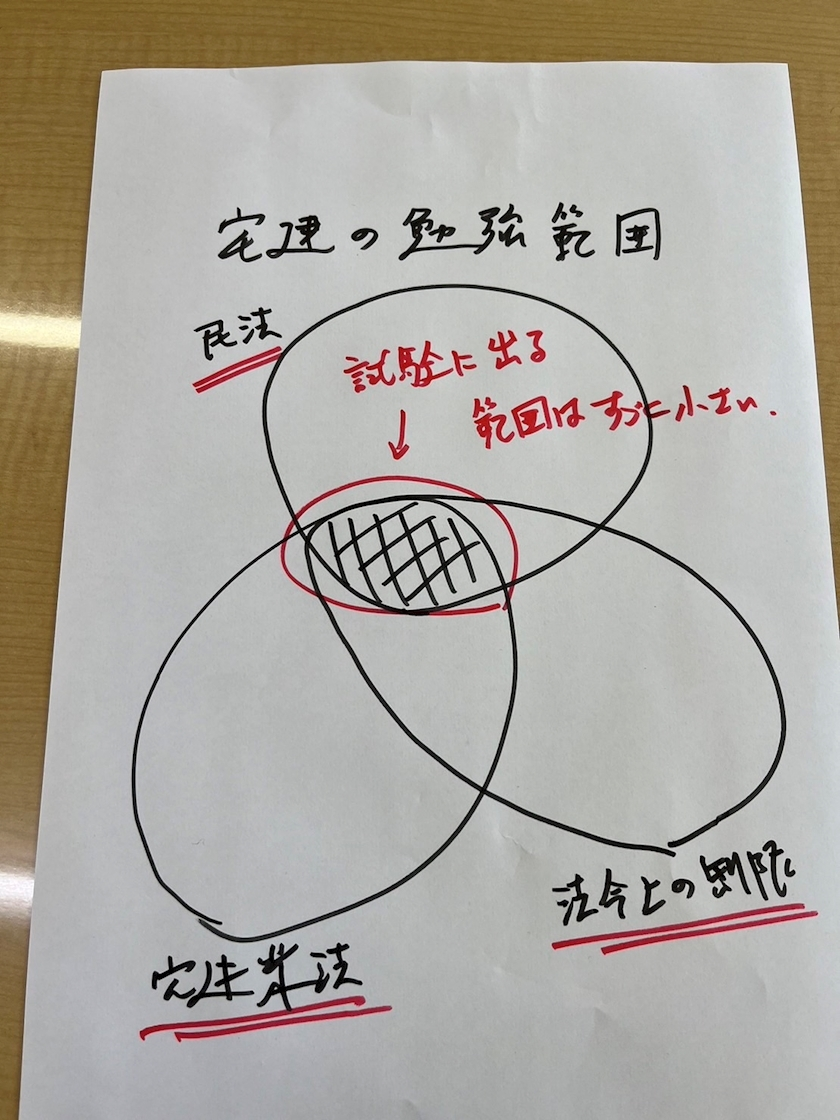 宅建の勉強範囲
民法
試験に出る
範囲はすごに小さい.
法令上の制限
宅建業法